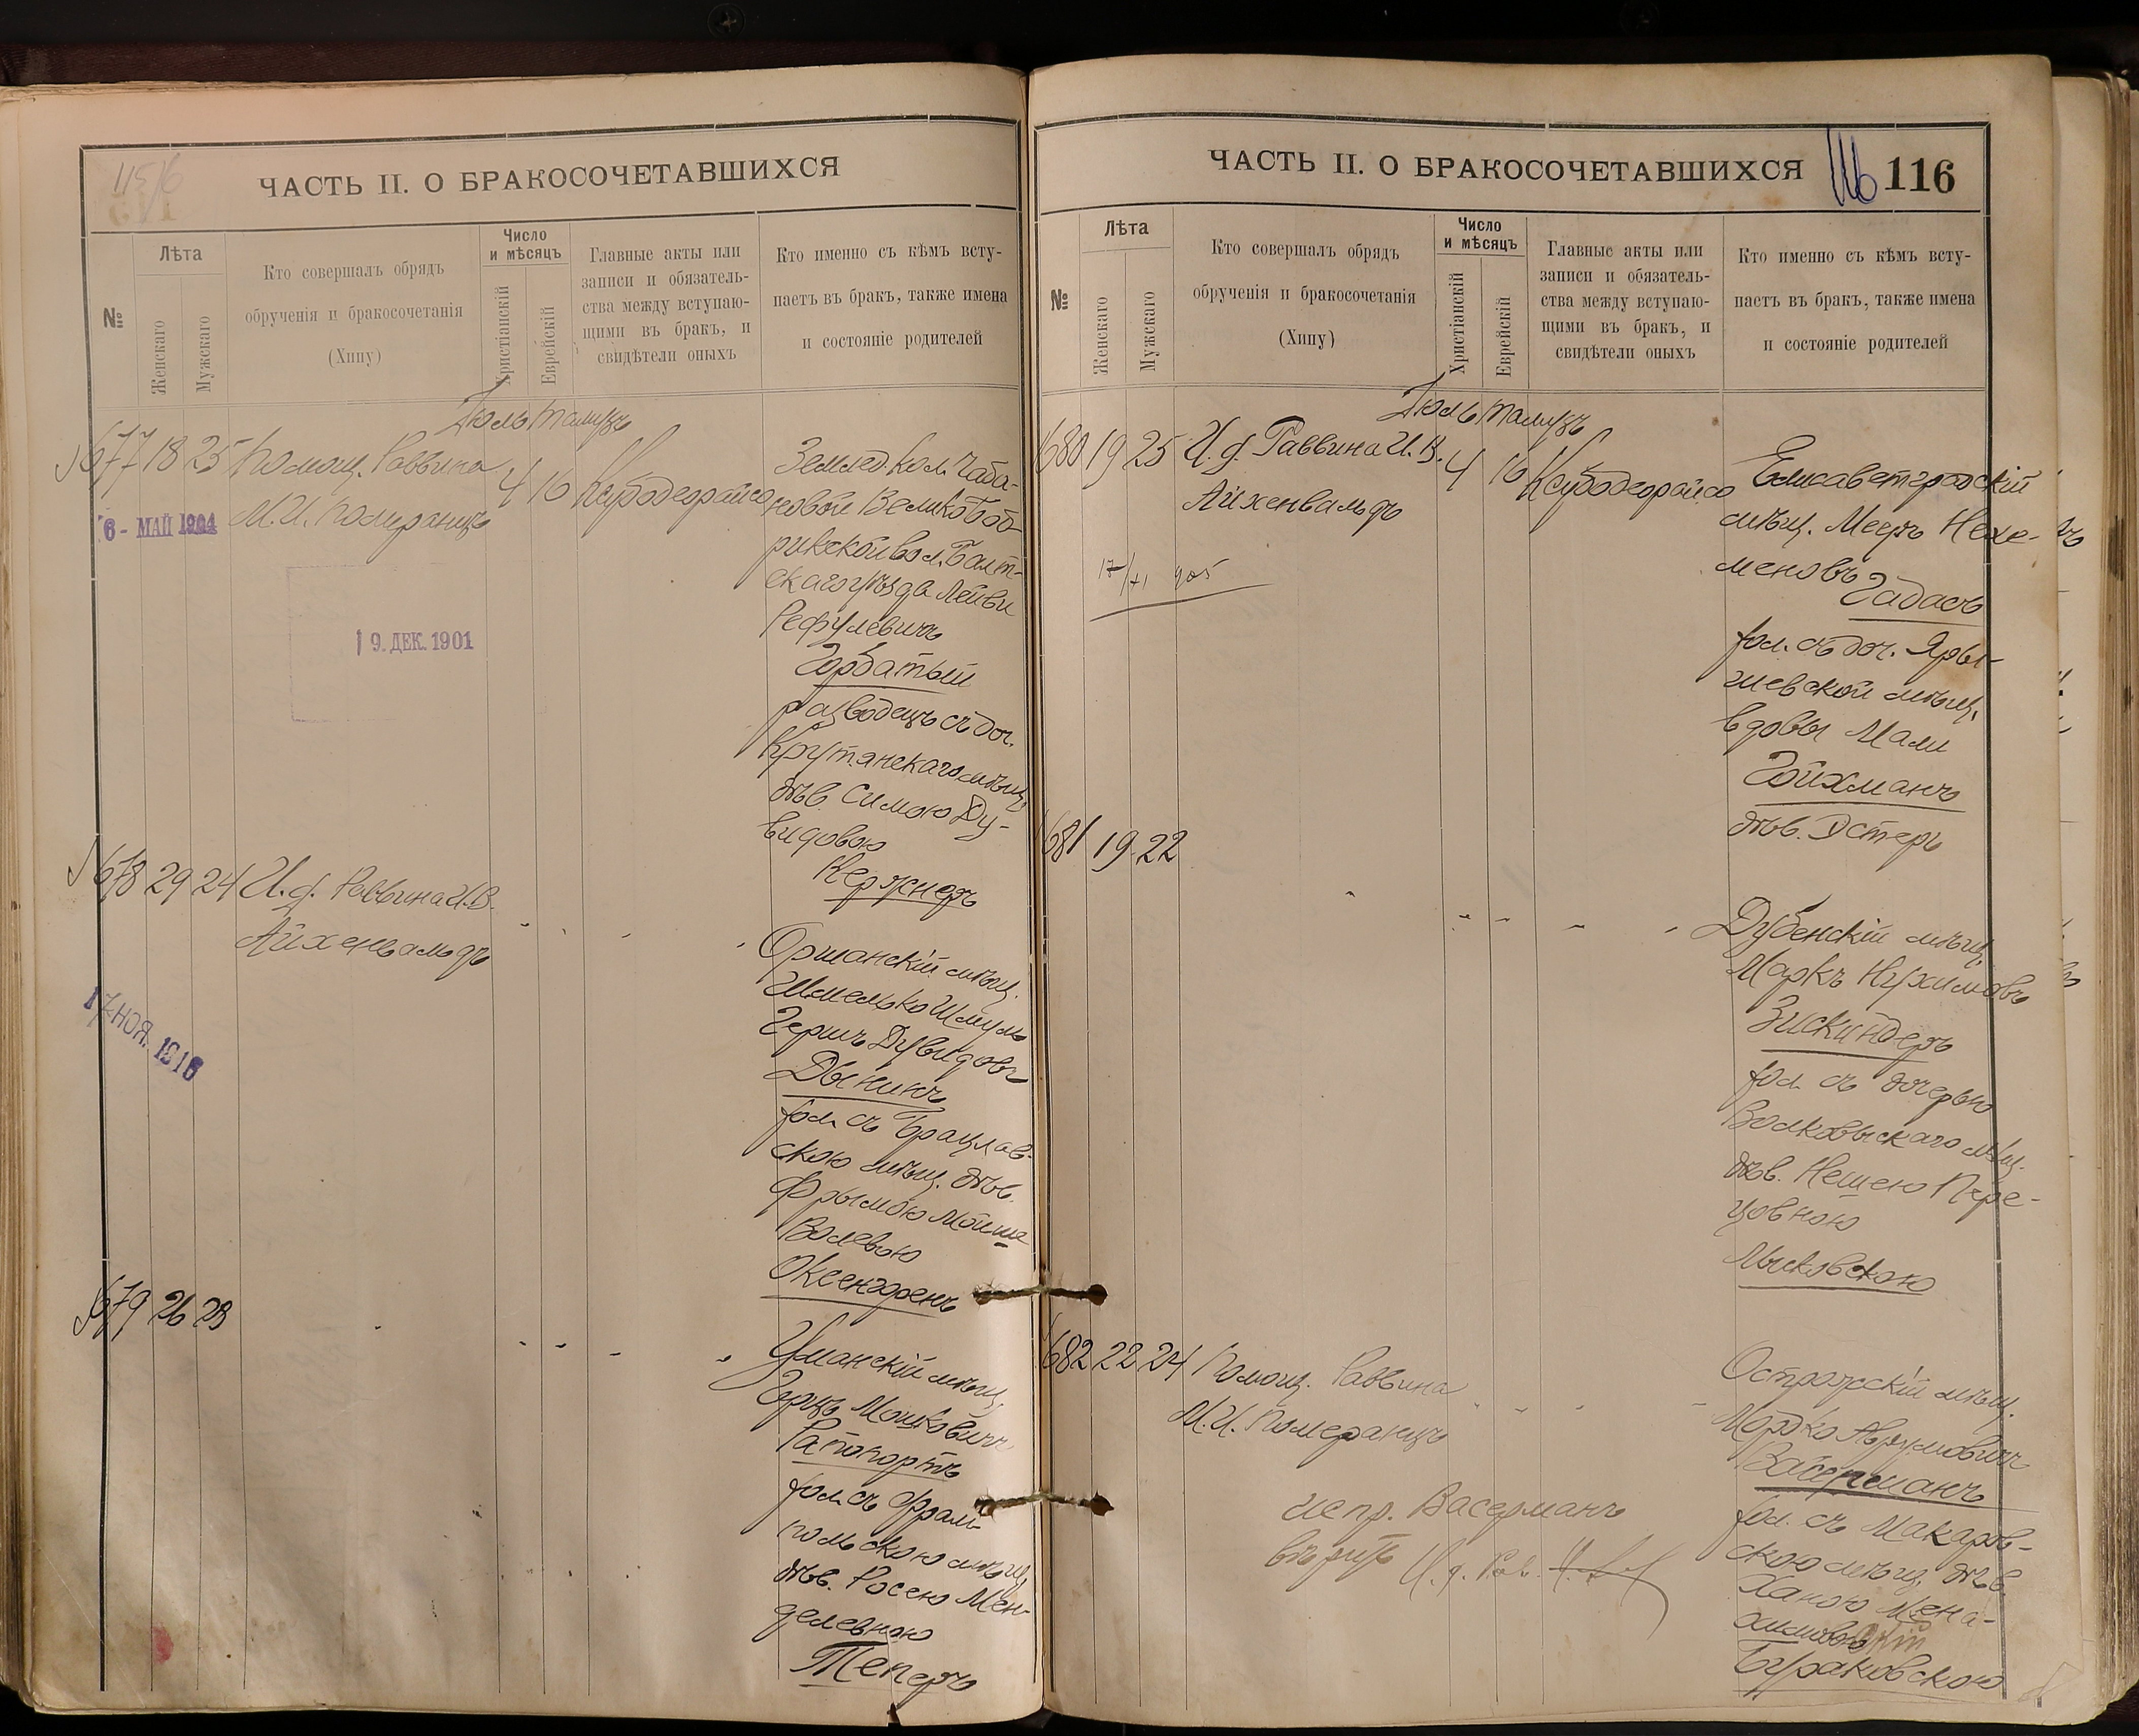 ЧАСТЬ II. О БРАКОСОЧЕТАВШИХСЯ
№
Лѣта
Женскаго
Мужскаго
Кто совершалъ обрядъ
обрученія и бракосочетанія
(Хипу)
Число
и мѣсяцъ
Христіанскій
Еврейскій
Главные акты или
записи и обязатель-
ства между вступаю-
щими въ бракъ, и
свидѣтели оныхъ
Кто именно съ кѣмъ всту-
паетъ въ бракъ, также имена
и состояніе родителей
Іюль Тамузъ
677 18 25 Помощ. Раввина
М. И. Померанцъ
4 10 Ксубодеорайсо
6 - МАЙ 1904
9. ДЕК. 1901
Землед. кол. Чаба-
новой Великобоб-
рикской вол. Балт-
скаго уѣзда Лейви
Рефулевичъ
Горбатый
разводецъ съ доч.
Крутянскаго мѣщ.
дѣв. Симою Ду-
видовою
Кержнеръ
678 29 24 И. д. Раввина И. В.
Айхенвальдъ
17 НОЯ. 1916
Оршанскій мѣщ.
Шмелько Шмуль
Гершъ Дувидовъ
Дынинъ
хол. съ Брацлав-
скою мѣщ. дѣв.
Фрымою Мойше
Волевою
Оксенгоренъ
679 26 23
Уманскій мѣщ.
Герцъ Мошковичъ
Рапопортъ
хол. съ Фрам-
польскою мѣщ.
дѣв. Росею Мен-
делевною
Теперъ
ЧАСТЬ II. О БРАКОСОЧЕТАВШИХСЯ
116 116
№
Лѣта
Женскаго
Мужскаго
Кто совершалъ обрядъ
обрученія и бракосочетанія
(Хипу)
Число
и мѣсяцъ
Христіанскій
Еврейскій
Главные акты или
записи и обязатель-
ства между вступаю-
щими въ бракъ, и
свидѣтели оныхъ
Кто именно съ кѣмъ всту-
паетъ въ бракъ, также имена
и состояніе родителей
Іюль Тамузъ
680 19 25 И. д. Раввина И. В.
Айхенвальдъ
4 10 Ксубодеорайсо
Елисаветградскій
мѣщ. Мееръ Нехе-
меновъ
Гадасъ
хол. съ доч. Яры-
шевской мѣщ.
вдовы Мали
Гойхманъ
дѣв. Эстеръ
681 19 22
Дубенскій мѣщ.
Маркъ Нухимовъ
Зискиндеръ
хол. съ дочерью
Волковыскаго мѣщ.
дѣв. Нешею Пере-
цовною
Лысковскою
682 22 24 Помощ. Раввина
М. И. Померанцъ
Острожскій мѣщ.
Мордко Аврумовичъ
Васерманъ
хол. съ Макаров-
скою мѣщ. дѣв.
Ханою Мена-
Бураковскою
испр. Васерманъ
вѣрить И. д. Рав.